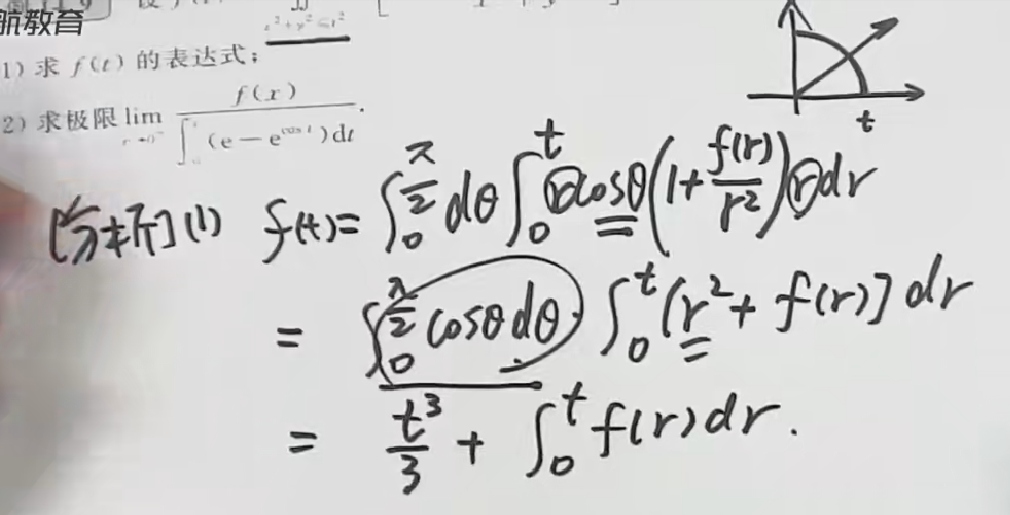 航教育
x²+y²≤t²
1) 求 f(t) 的表达式;
2) 求极限 lim f(x) / ∫ (e − e^{cos t})dt .
[分析] (1) f(t) = ∫_0^{π/2} dθ ∫_0^t r cosθ (1 + f(r)/r²) r dr
= ∫_0^{π/2} cosθ dθ ∫_0^t [r² + f(r)] dr
= t³/3 + ∫_0^t f(r) dr.
t